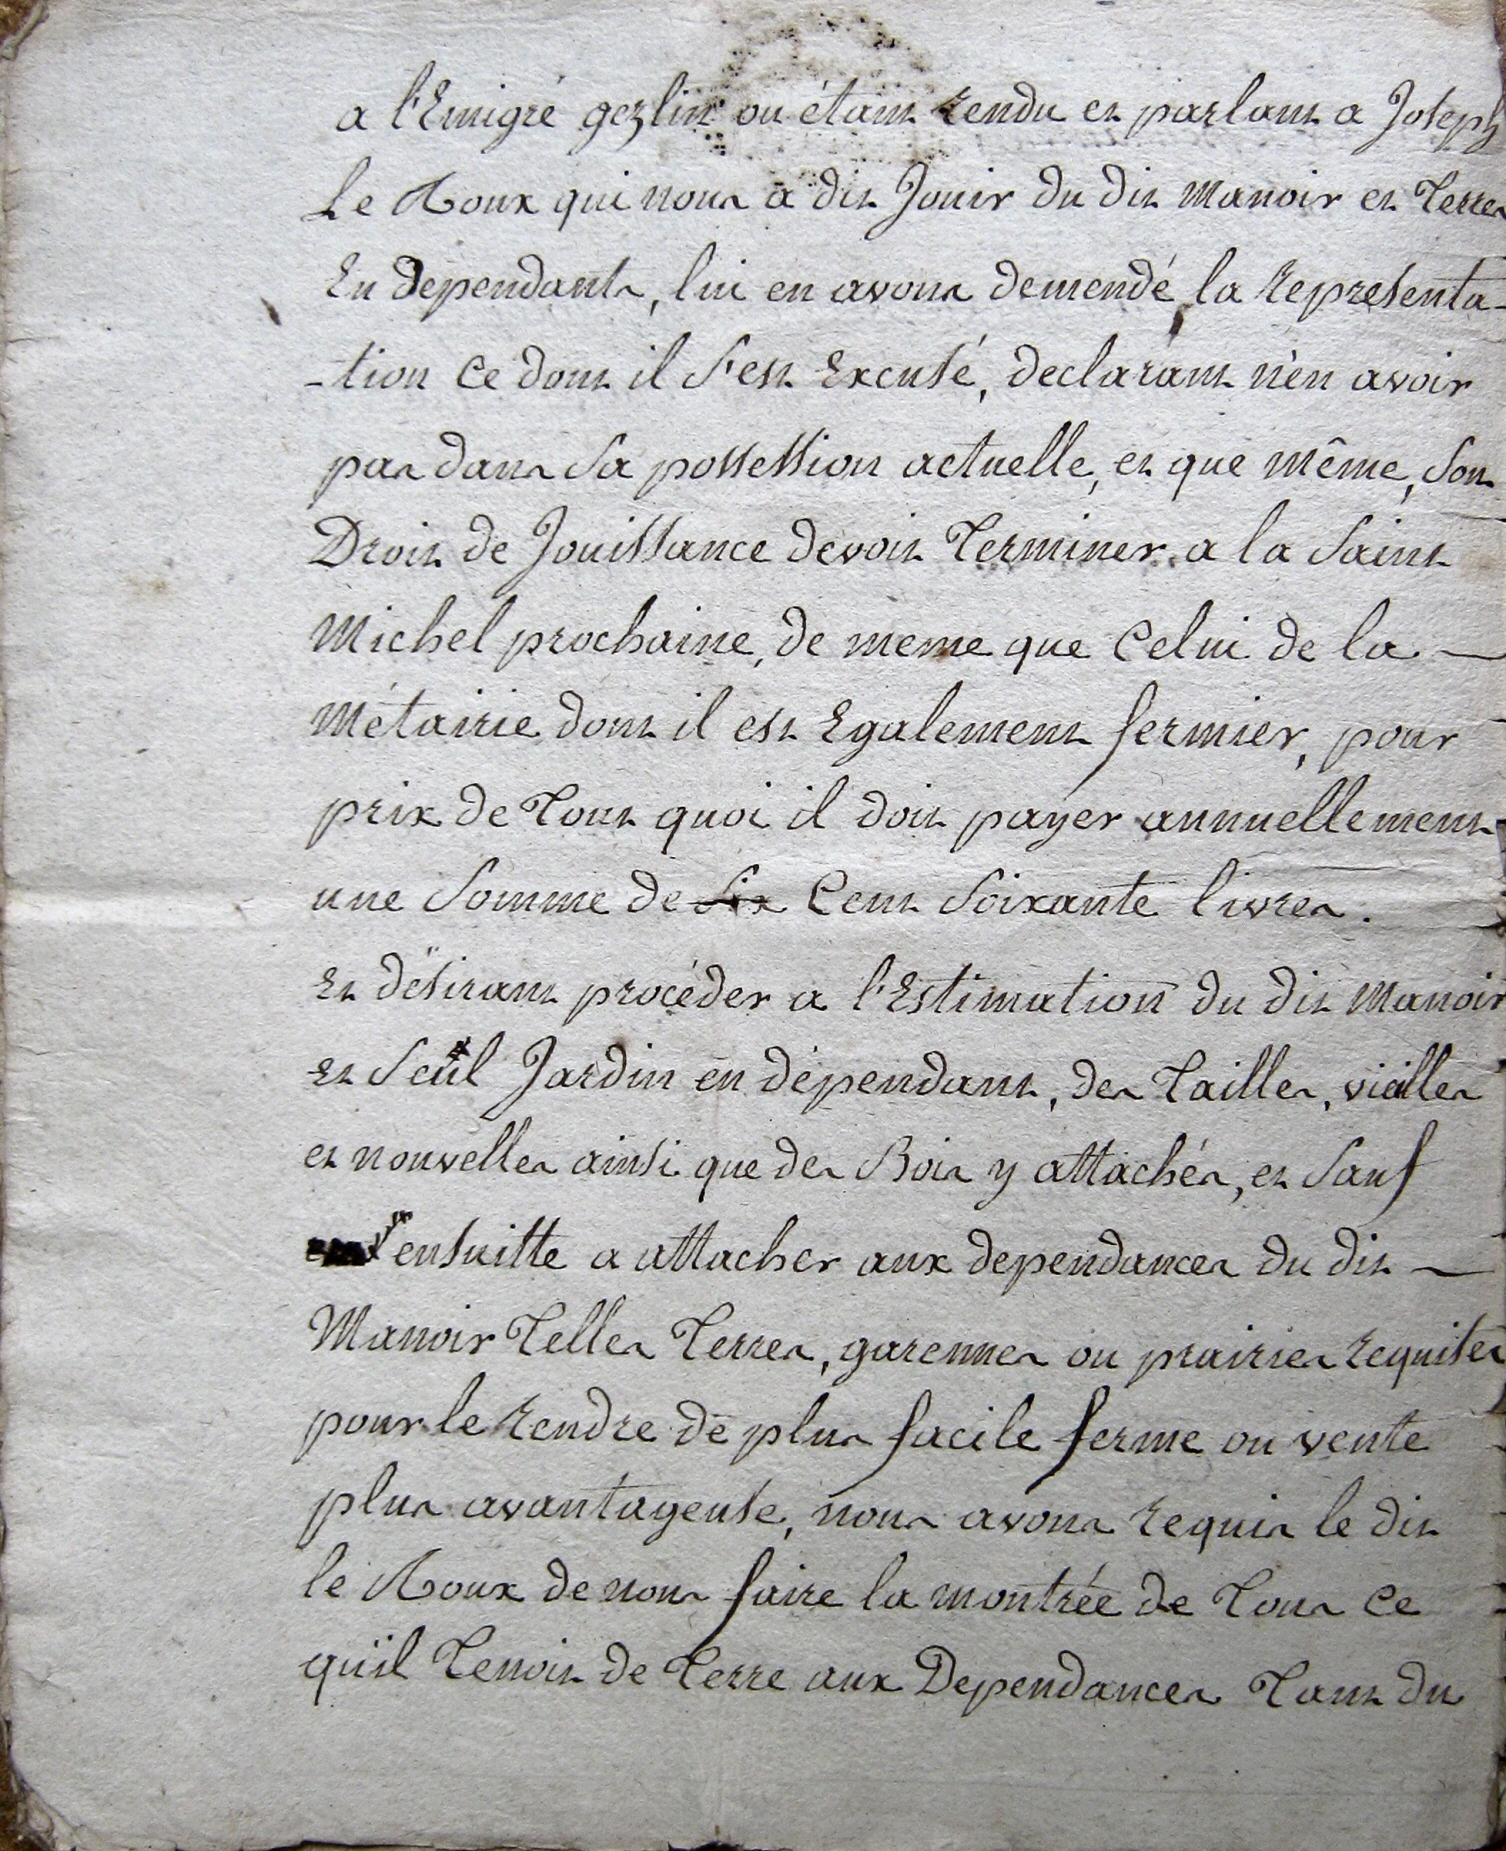 a l'Emigré gezlin ou étant rendu et parlant a Joseph
Le Roux qui nous a dit Jouir du dit manoir et Terres
En dependants, lui en avons demendé la representa-
-tion ce dont il s'est Excusé, declarant n'en avoir
pas dans sa possession actuelle, et que même, son
Droit de Jouissance devoit Terminer a la saint
Michel prochaine, de meme que celui de la —
Métairie dont il est Egalement fermier, pour
prix de Tout quoi il doit payer annuellement
une somme de six Cent soixante livres.
Et désirant procéder a l'Estimation du dit manoir
et seul Jardin en dépendant, des Tailles, vieilles
et nouvelles ainsi que des Bois y attachés, et sauf
ensuitte a attacher aux dependances du dit —
Manoir Telles Terres, garennes ou prairies requises
pour le rendre de plus facile ferme ou vente
plus avantageuse, nous avons requis le dit
le Roux de nous faire la montrée de Tous ce
qu'il Tenoit de Terre aux Dependances Tant du